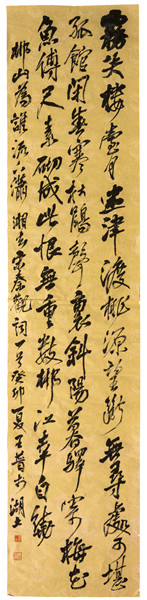 霧失樓臺月迷津渡桃源望斷無尋處可堪
孤館閉春寒杜鵑聲裏斜陽暮驛寄梅花
魚傳尺素砌成此恨無重數郴江幸自繞
郴山為誰流下瀟湘去 宋秦觀詞一首癸卯夏王晉